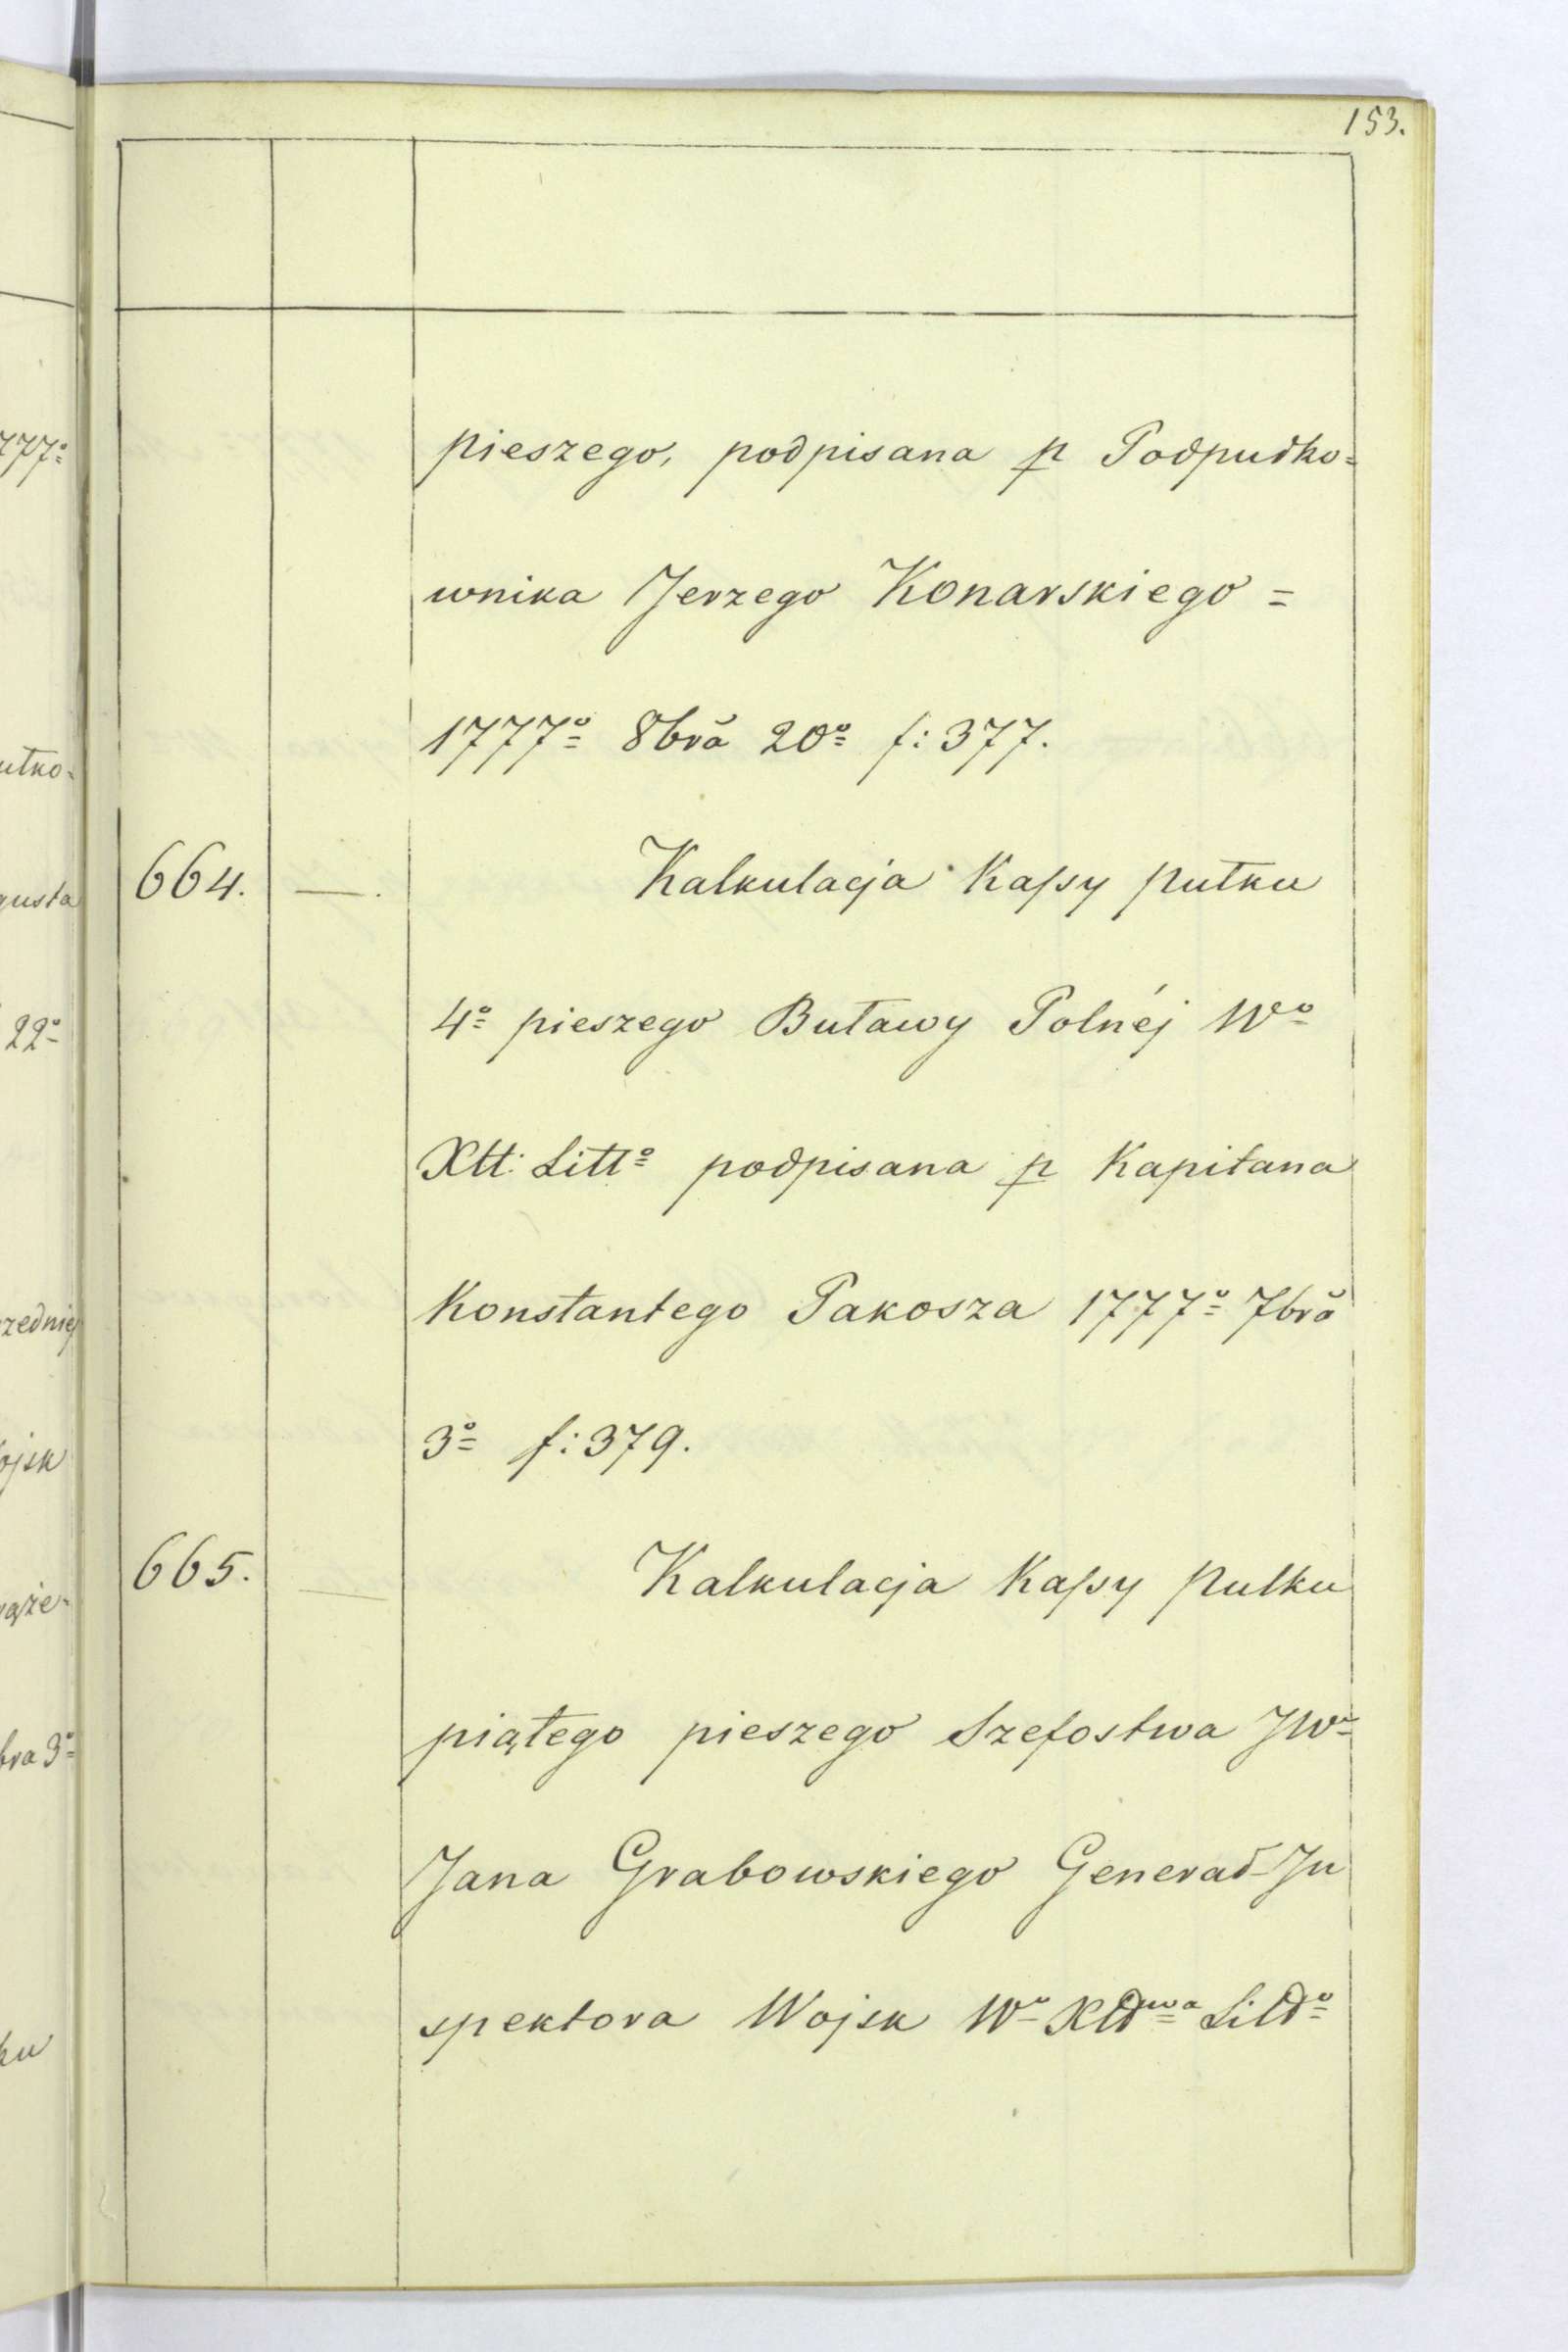 153.
pieszego, podpisana p Podpułko=
wnika Jerzego Konarskiego =
1777o 8bra 20o f: 377.
664. — Kalkulacja Kassy pułku
4o pieszego Buławy Polnéj Wo
Xtt: Litto podpisana p Kapitana
Konstantego Pakosza 1777o 7bra
3o f: 379.
665. — Kalkulacja Kassy Pulku
piątego pieszego Szefostwa JWo
Jana Grabowskiego Generał-Jn
spektora Wojsk Wo Xttwa Litto
777o
utko-
gusta
22o
rzedniej
ojsk
bra 3o
ku